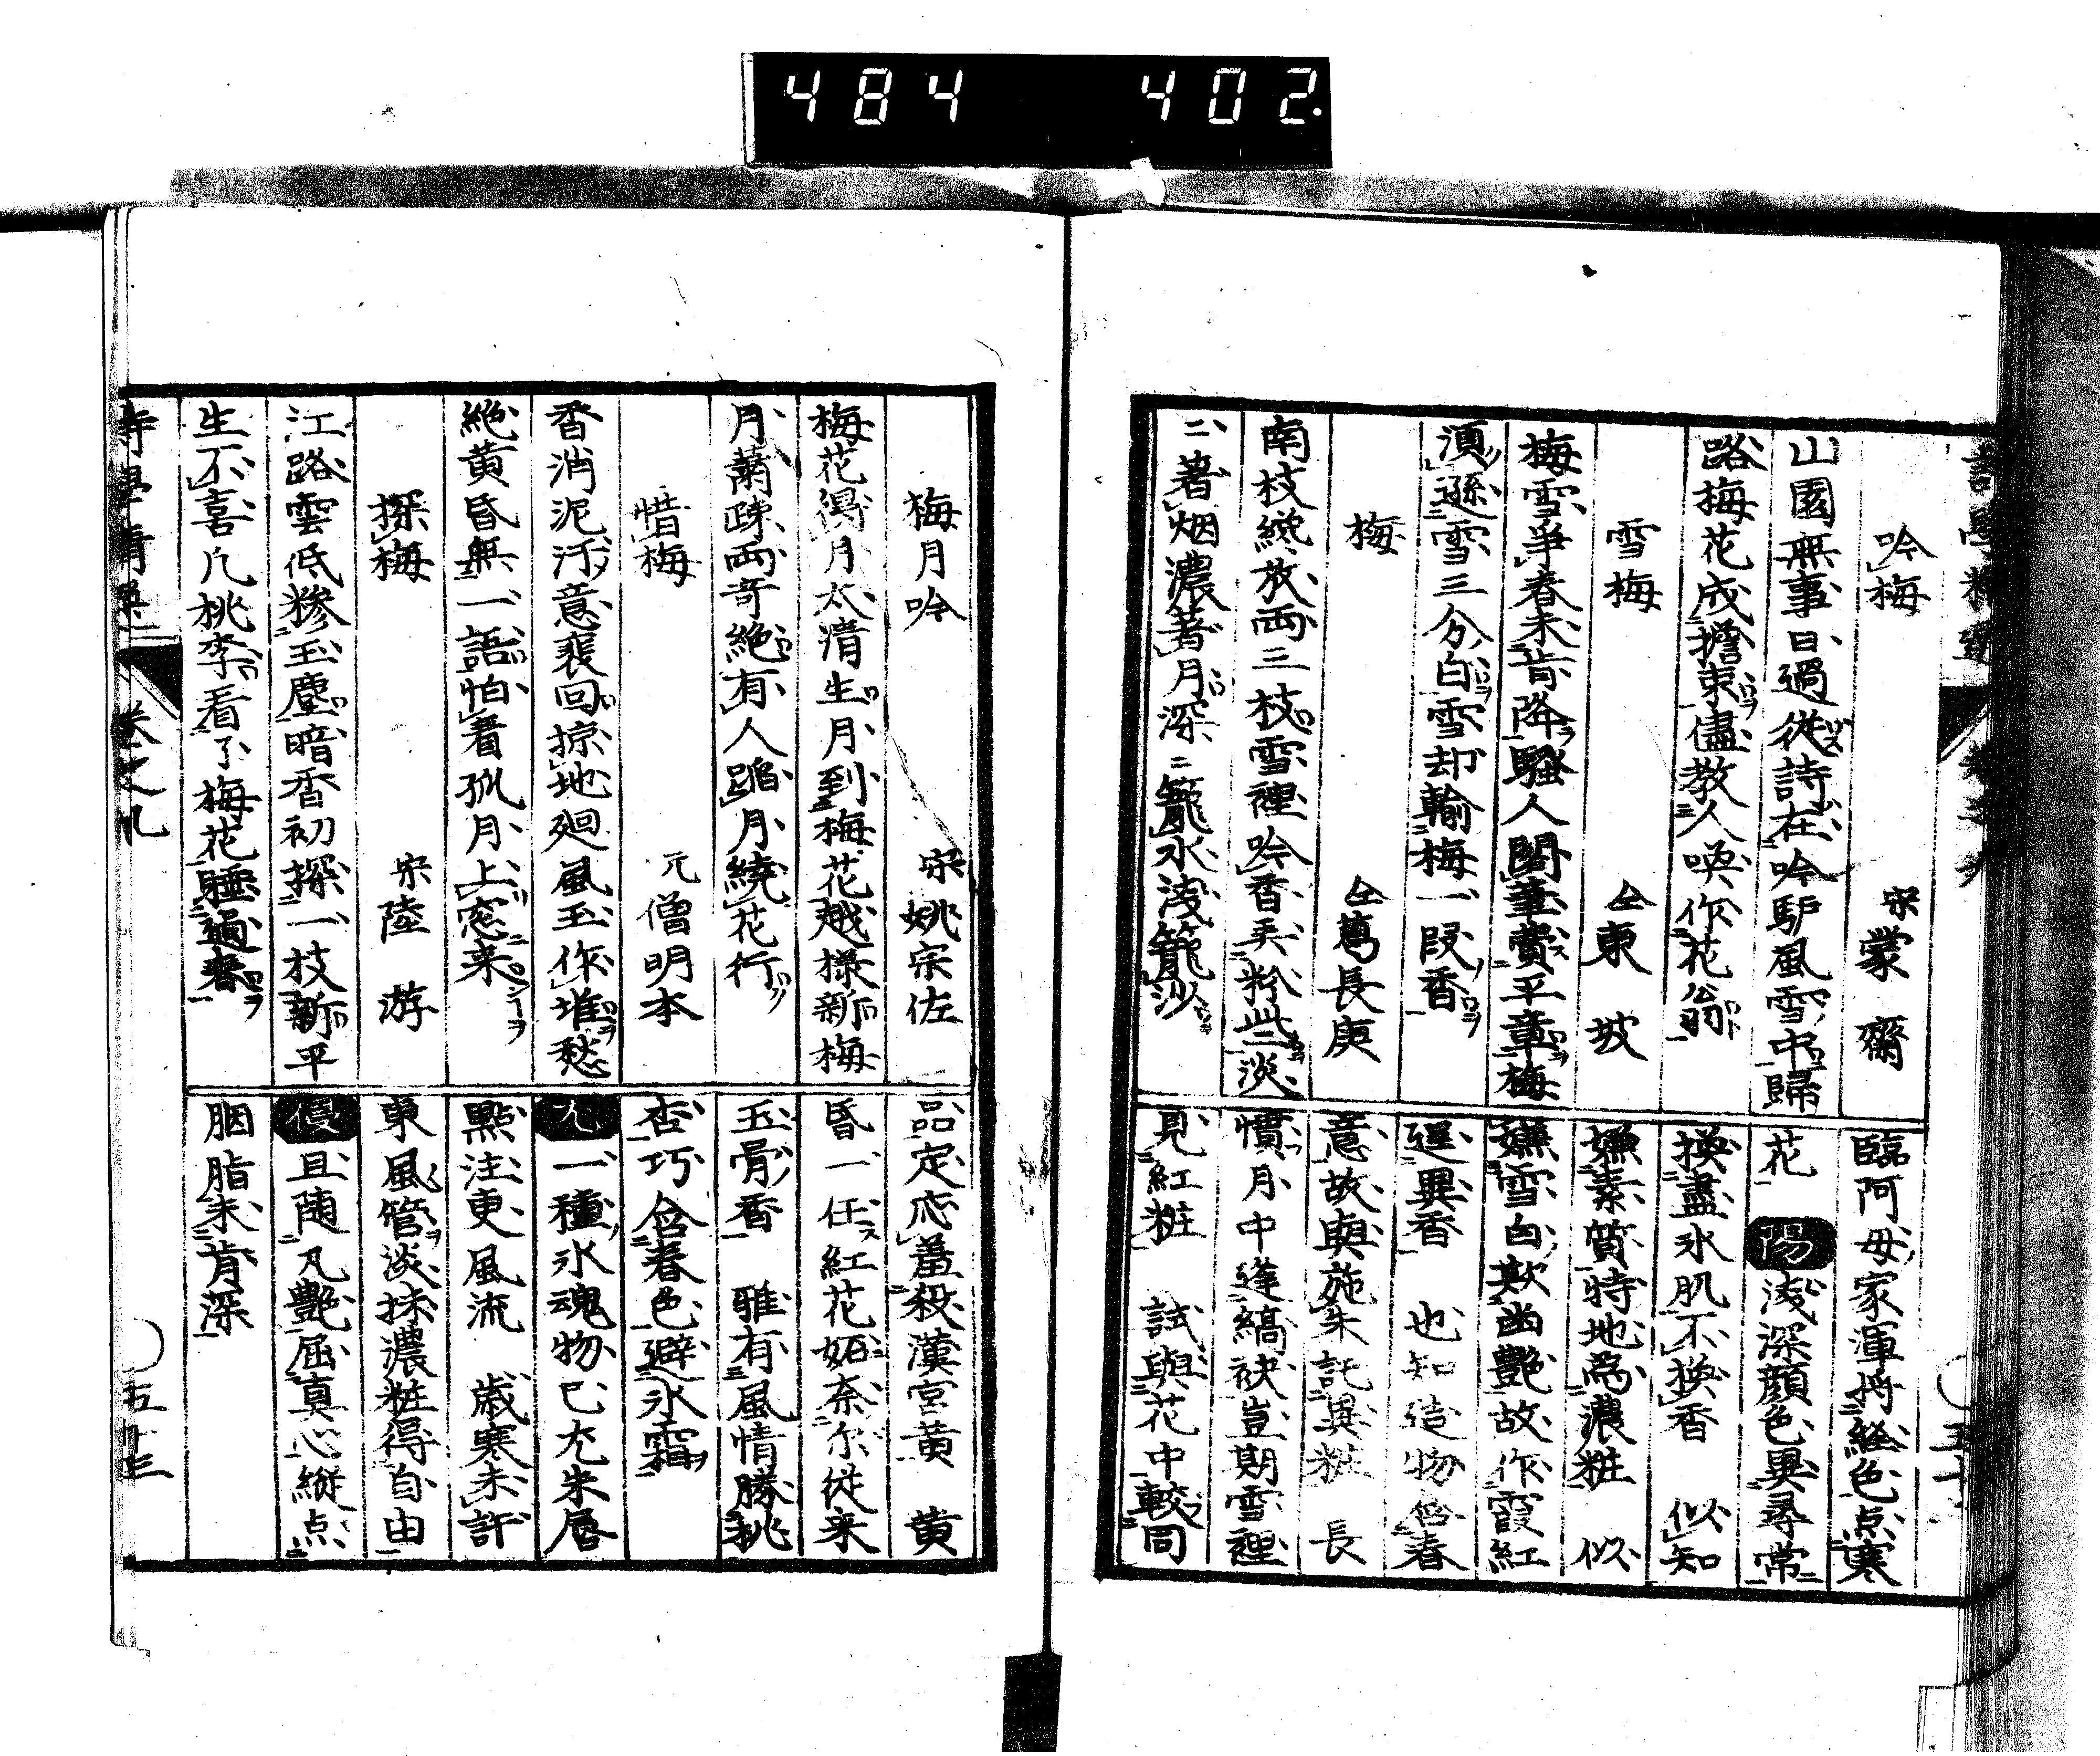 484 402.
吟梅 宋蒙齋
山園無事日過從詩在吟馿風雪中歸
路梅花成擔束儘教人喚作花翁
雪梅 仝東坡
梅雪爭春未肯降騷人閣筆費平章梅
須遜雪三分白雪却輸梅一段香
梅 仝葛長庚
南枝纔放兩三枝雪裡吟香弄粉些淡
二著烟濃著月深二籠水淺籠沙
臨阿母家渾將絵色点寒
花 陽 淺深顔色異尋常
換盡氷肌不換香 似知
嫌素質特地為濃粧 似
嫌雪白欺凾艷故作霞紅
逞異香 也知造物含春
意故與施朱託異粧 長
慣月中逢縞袂豈期雪裡
見紅粧 試與花中較同
梅月吟 宋姚宗佐
梅花得月太清生月到梅花越様新梅
月蕭踈両奇絶有人踏月繞花行
惜梅 元僧明本
香消泥汙意裴回掠地廻風玉作堆愁
絶黄昏無一語怕看孤月上窓来
探梅 宋陸游
江路雲低糝玉塵暗香初探一枝新平
生不喜凡桃李看了梅花睡過春
品定応羞殺漢宮黄 黄
昏一任紅花妬奈尓従来
玉骨香 雅有風情勝桃
杏巧含春色避氷霜
尤 一種氷魂物已尤朱唇
點注更風流 歳寒未許
東風管淡抹濃粧得自由
侵 且随凡艷屈真心縦点
胭脂未肯深
卷之九
五十三